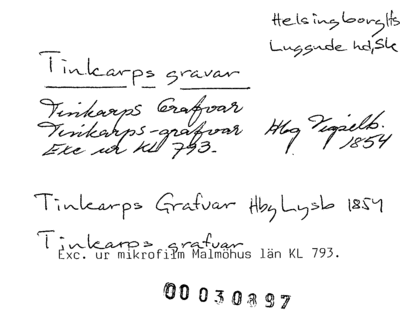 Helsingborg lfs
Luggude hd, Sk
Tinkarps gravar
Tinkarps Grafvar
Tinkarps-grafvar Hbg Vigselb.
Exc ur KL 793. 1854
Tinkarps Grafvar Hbg Lysb 1854
Tinkarps grafvar
Exc. ur mikrofilm Malmöhus län KL 793.
00030897